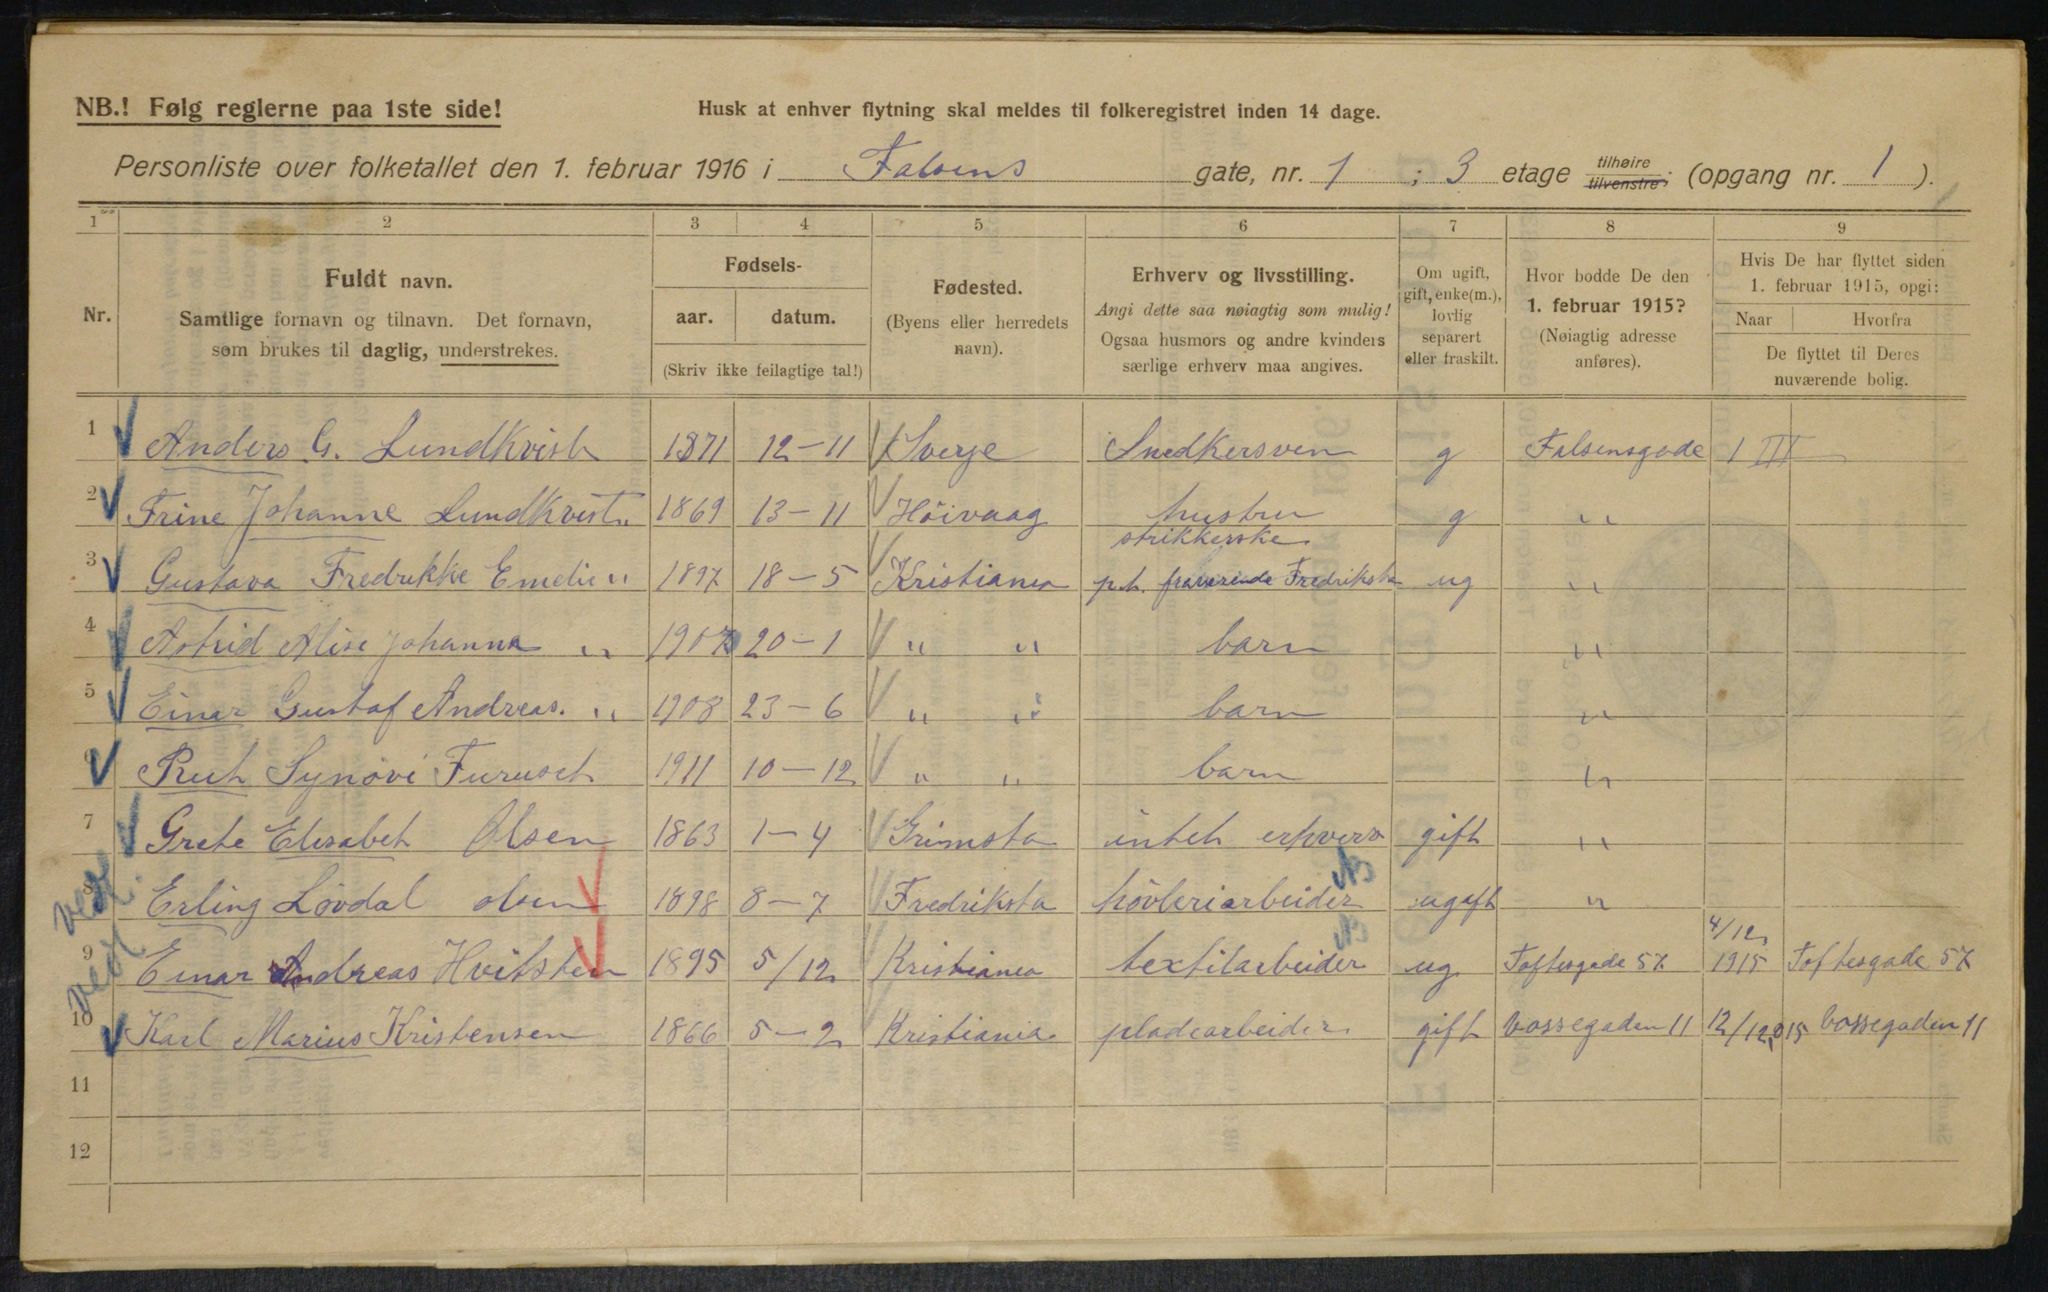 NB.! Følg reglerne paa 1ste side!
Husk at enhver flytning skal meldes til folkeregistret inden 14 dage.
Personliste over folketallet den 1. februar 1916 i Falsens gate, nr. 1 ; 3 etage tilhøire tilvenstre; (opgang nr. 1 ).
1 2 3 4 5 6 7 8 9
Nr.
Fuldt navn.
Samtlige fornavn og tilnavn. Det fornavn,
som brukes til daglig, understrekes.
Fødsels-
aar. datum.
(Skriv ikke feilagtige tal!)
Fødested.
(Byens eller herredets
navn).
Erhverv og livsstilling.
Angi dette saa nøiagtig som mulig!
Ogsaa husmors og andre kvinders
særlige erhverv maa angives.
Om ugift,
gift, enke(m.),
lovlig
separert
eller fraskilt.
Hvor bodde De den
1. februar 1915?
(Nøiagtig adresse
anføres).
Hvis De har flyttet siden
1. februar 1915, opgi:
Naar Hvorfra
De flyttet til Deres
nuværende bolig.
1 Anders G. Lundkvist 1871 12-11 Sverje Snedkersven g Falsensgade 1 III
2 Trine Johanne Lundkvist 1869 13-11 Höivaag hustru strikkerske g "
3 Gustava Fredrikke Emelie " 1897 18-5 Kristiania p.t. fraverende Fredriksta ug "
4 Astrid Alise Johanna " 1907 20-1 " " barn "
5 Einar Gustaf Andreas. " 1908 23-6 " " barn "
6 Rut Synövi Furuset 1911 10-12 " " barn "
7 Grete Elisabet Olsen 1863 1-4 Grimsta intet erhverv gift "
8 Erling Lövdal olsen 1898 8-7 Fredriksta hövleriarbeider ugift "
9 Einar Andreas Hvitsten 1895 5/12 Kristiania textilarbeider ug Toftesgade 57 4/12 1915 Toftesgade 57
10 Karl Marius Kristensen 1866 5-2 Kristiania pladearbeider gift Vossegaden 11 12/12 15 Vossegaden 11
11
12